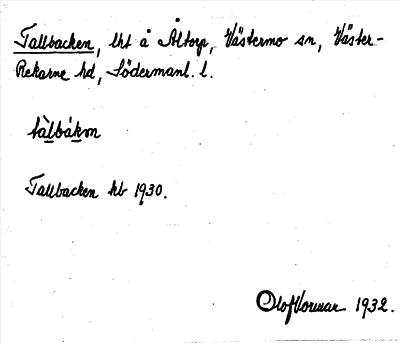 Tallbacken, lht å Åltorp, Västermo sn, Väster-
Rekarne hd, Södermanl. l.
tàlbákɷn
Tallbacken kb 1930.
Olof Vorman 1932.